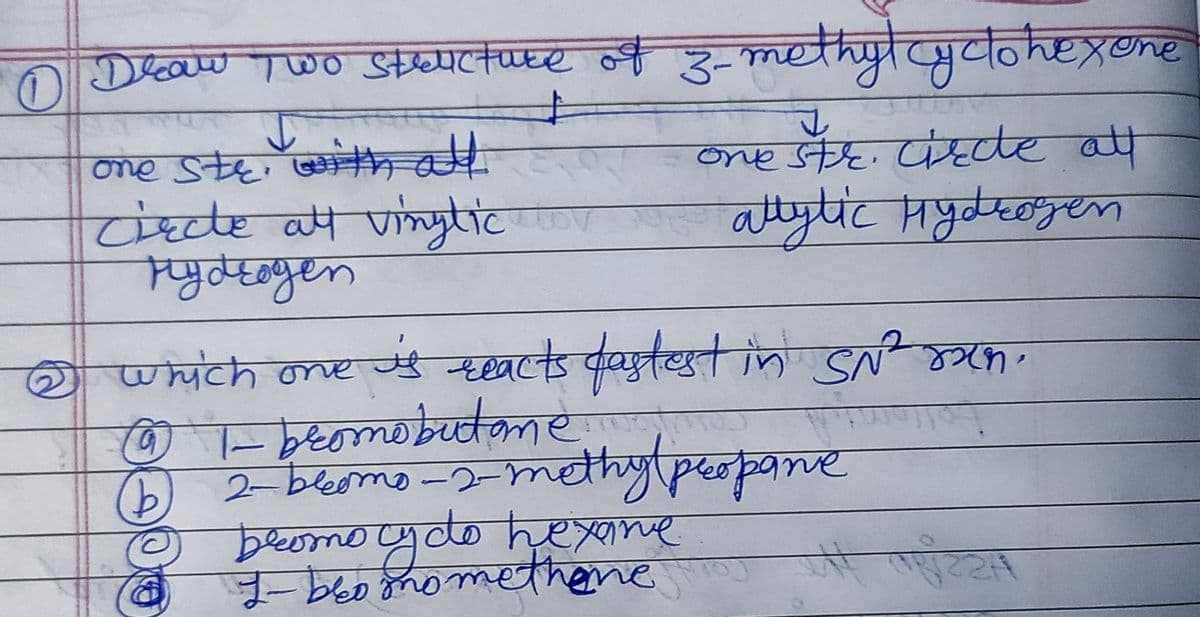 ① Draw Two structure of 3-methylcyclohexene
one str. with all one str. circle all
circle all vinylic allylic Hydrogen
Hydrogen
② which one is reacts fastest in SN² rxn.
ⓐ 1-bromobutane
ⓑ 2-bromo-2-methylpropane
ⓒ bromocyclohexane
ⓓ 1-bromomethane